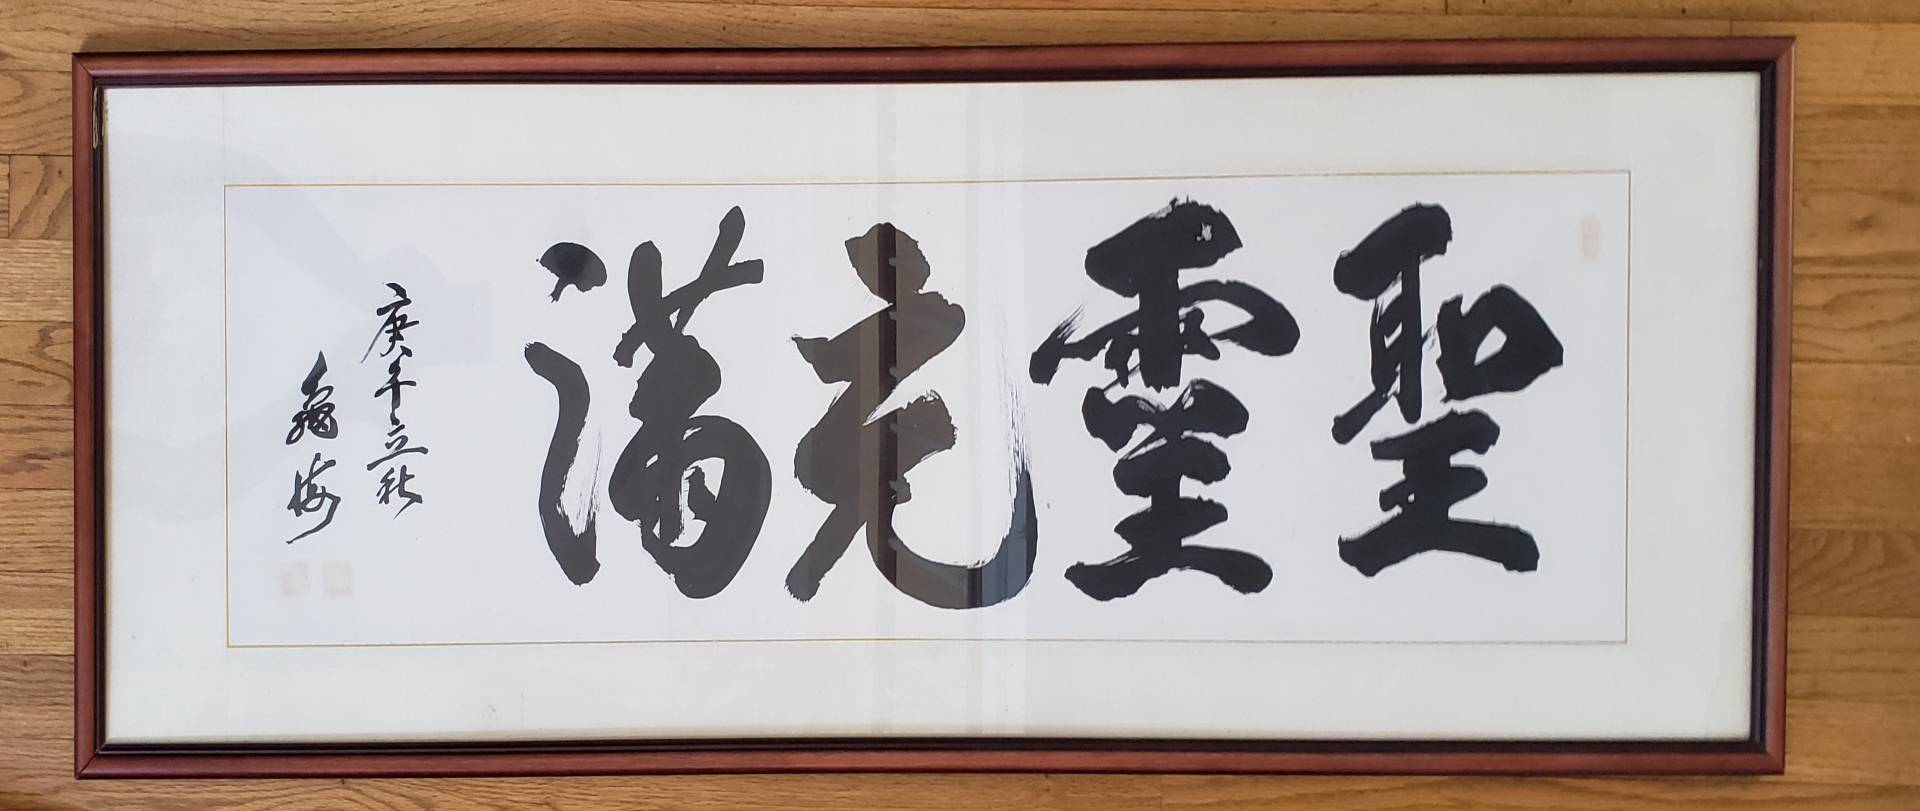 聖靈充滿
庚午立秋
龜海